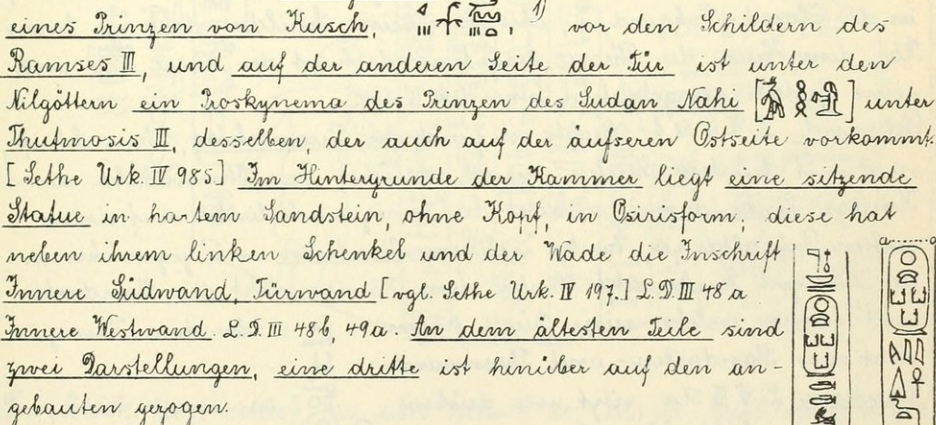 eines Prinzen von Kusch, 1) vor den Schildern des
Ramses III, und auf der anderen Seite der Tür ist unter den
Nilgöttern ein Proskynema des Prinzen des Sudan Nahi [ ] unter
Thutmosis III, desselben, der auch auf der äufseren Ostseite vorkommt.
[Sethe Urk. IV 985] Im Hintergrunde der Kammer liegt eine sitzende
Statue in hartem Sandstein, ohne Kopf, in Osirisform; diese hat
neben ihrem linken Schenkel und der Wade die Inschrift
Innere Südwand, Türwand [vgl. Sethe Urk. IV 197.] L.D. III 48 a
Innere Westwand L.D. III 48b, 49a. An dem ältesten Teile sind
zwei Darstellungen, eine dritte ist hinüber auf den an-
gebauten gezogen.